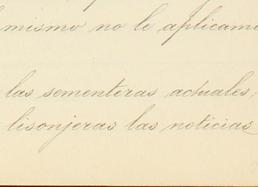 mismo no le aplicamo
las sementeras actuales,
lisonjeras las noticias